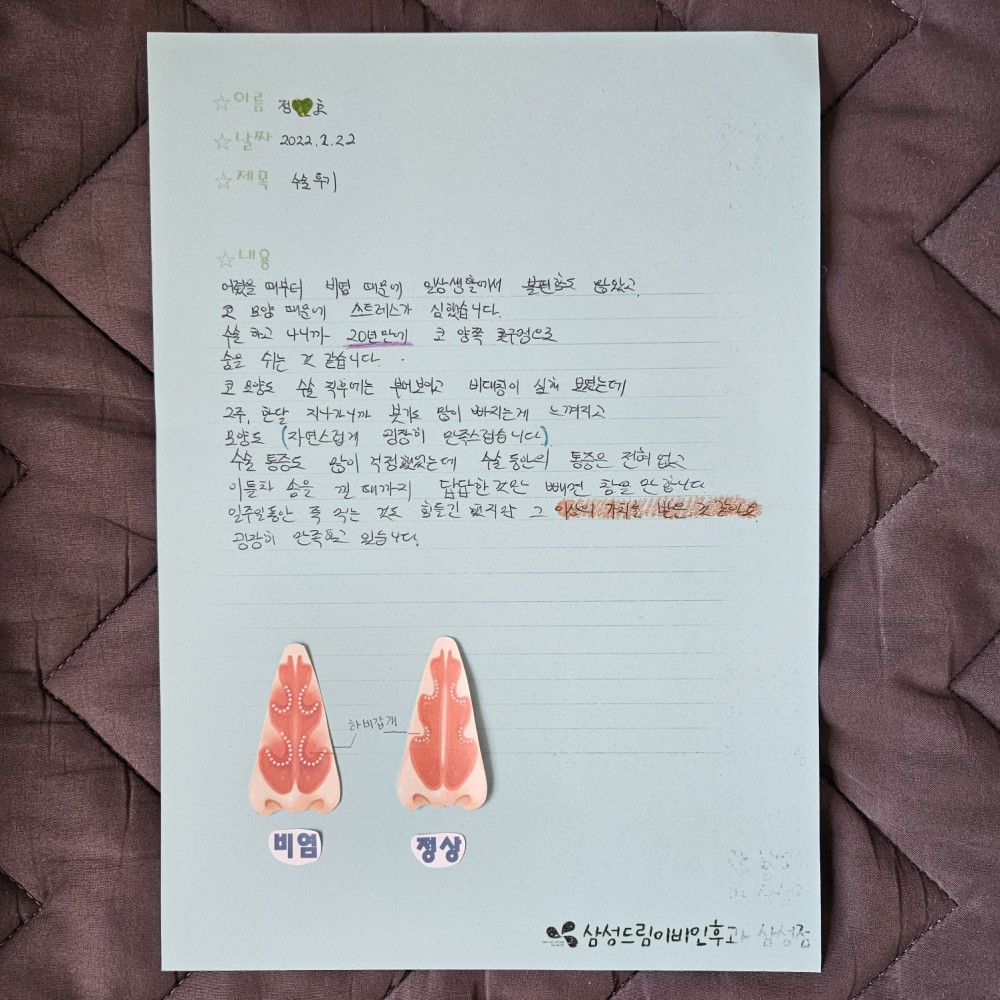 ☆이름 정💚호
☆날짜 2022.2.22
☆제목 수술 후기
☆내용
어렸을 때부터 비염 때문에 일상생활에서 불편함도 많았고,
코 모양 때문에 스트레스가 심했습니다.
수술 하고 나니까 20년만에 코 양쪽 콧구멍으로
숨을 쉬는 것 같습니다.
코 모양도 수술 직후에는 부어보이고 비대칭이 심해 보였는데
2주, 한달 지나가니까 붓기도 많이 빠지는게 느껴지고
모양도 (자연스럽게 굉장히 만족스럽습니다)
수술 통증도 많이 걱정했었는데 수술 동안의 통증은 전혀 없고
이틀차 솜을 낄 때까지 답답한 것만 빼면 참을 만 합니다
일주일동안 죽 먹는 것도 힘들긴 했지만 그 이상의 가치를 받은 것 같아요
굉장히 만족하고 있습니다.
하비갑개
비염 정상
삼성드림이비인후과 삼성점